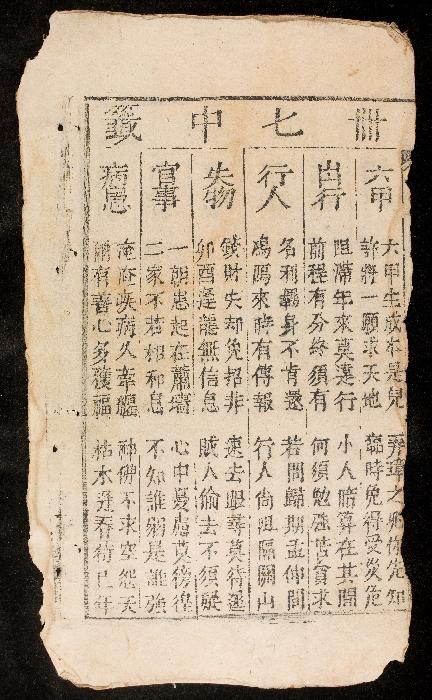 卌七中籤
六甲
六甲生成本是兒 弄璋之兆你先知
許將一願求天地 臨時免得受災危
出行
阻滯年來莫遠行 小人暗算在其間
前程有分終須有 何須勉強苦貪求
行人
名利羈身不肯還 若問歸期孟仲間
鴻鴈來時有傳報 行人尚阻隔關山
失物
錢財失却免招非 速去跟尋莫待遲
卯酉逢龍無信息 賊人偷去不須疑
官事
一朝患起在蕭墻 心中憂慮莫徬徨
二家不若相和息 不知誰弱是誰強
病患
淹淹疾病久牽纏 神佛不求空怨天
有善心多獲福 枯木逢春待己年